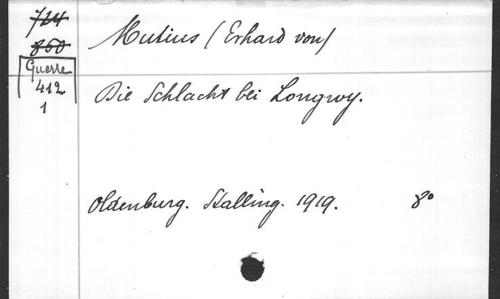 724
860
Guerre
412
1
Mutius (Erhard von)
Die Schlacht bei Longwy.
Oldenburg. Stalling. 1919. 8°